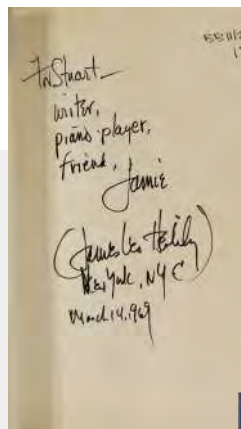 For Stuart—
writer,
piano player,
friend,
Jamie
(James Leo Herlihy)
New York, NYC
March 14, 1969